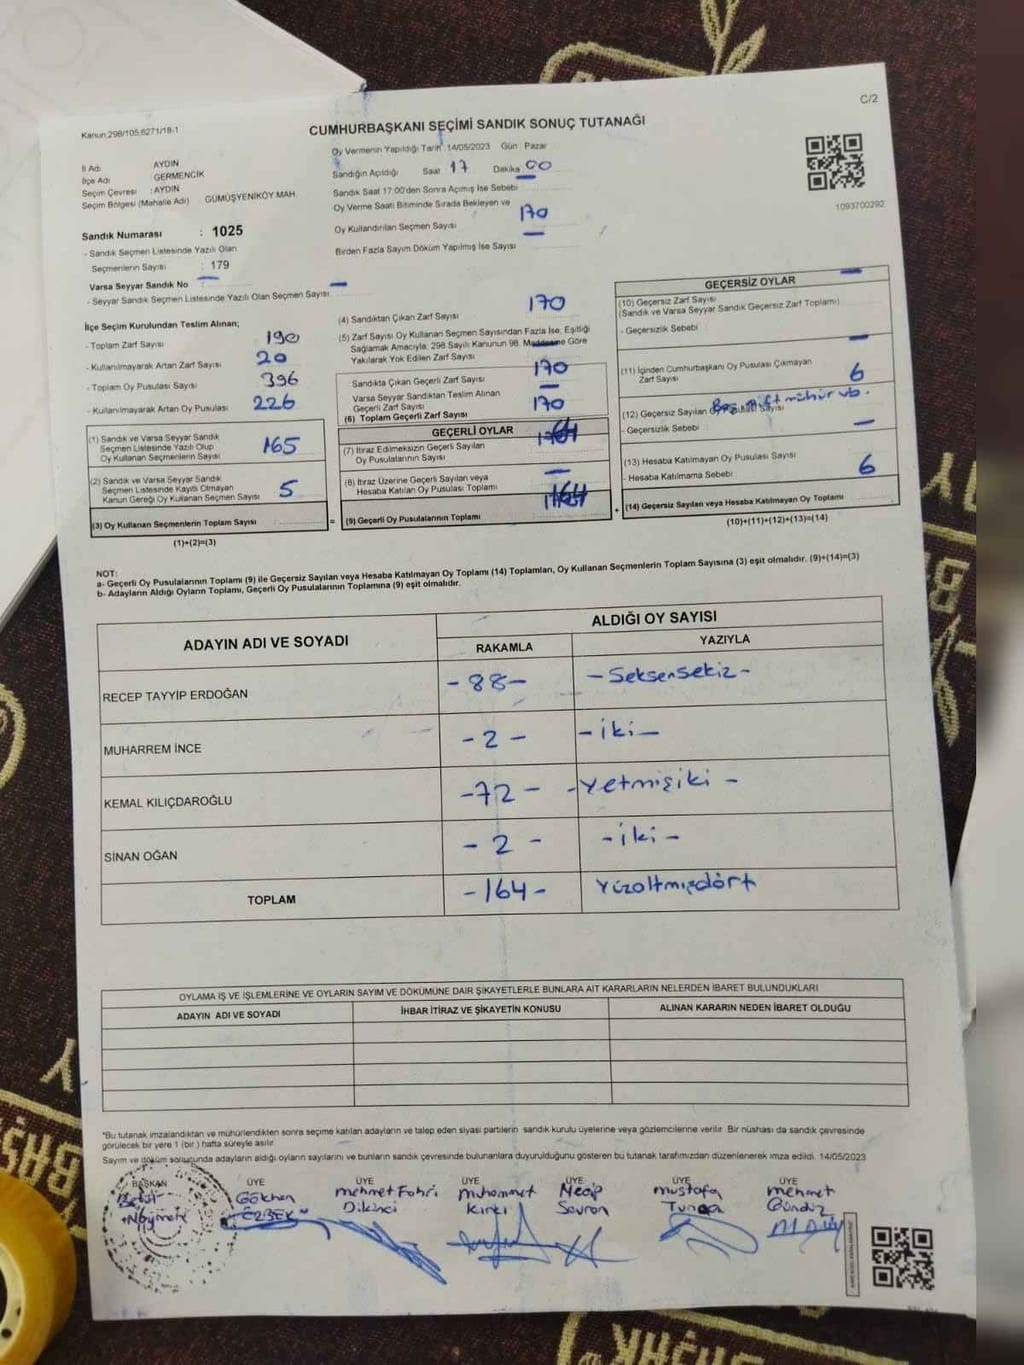 C/2
Kanun:298/105,6271/18-1
CUMHURBAŞKANI SEÇİMİ SANDIK SONUÇ TUTANAĞI
İl Adı AYDIN
İlçe Adı GERMENCİK
Seçim Çevresi : AYDIN
Seçim Bölgesi (Mahalle Adı) GÜMÜŞYENİKÖY MAH.
Oy Vermenin Yapıldığı Tarih 14/05/2023 Gün Pazar
Sandığın Açıldığı Saat 17 Dakika 00
Sandık Saat 17:00'den Sonra Açımış İse Sebebi
Oy Verme Saati Bitiminde Sırada Bekleyen ve
Oy Kullandırılan Seçmen Sayısı 170
Birden Fazla Sayım Döküm Yapılmış İse Sayısı
1093700292
Sandık Numarası : 1025
- Sandık Seçmen Listesinde Yazılı Olan
Seçmenlerin Sayısı : 179
Varsa Seyyar Sandık No
- Seyyar Sandık Seçmen Listesinde Yazılı Olan Seçmen Sayısı
İlçe Seçim Kurulundan Teslim Alınan;
- Toplam Zarf Sayısı 190
- Kullanılmayarak Artan Zarf Sayısı 20
- Toplam Oy Pusulası Sayısı 396
- Kullanılmayarak Artan Oy Pusulası 226
(1) Sandık ve Varsa Seyyar Sandık
Seçmen Listesinde Yazılı Olup
Oy Kullanan Seçmenlerin Sayısı 165
(2) Sandık ve Varsa Seyyar Sandık
Seçmen Listesinde Kayıtlı Olmayan
Kanun Gereği Oy Kullanan Seçmen Sayısı 5
(3) Oy Kullanan Seçmenlerin Toplam Sayısı =
(1)+(2)=(3)
(4) Sandıktan Çıkan Zarf Sayısı 170
(5) Zarf Sayısı Oy Kullanan Seçmen Sayısından Fazla İse, Eşitliği
Sağlamak Amacıyla, 298 Sayılı Kanunun 98. Maddesine Göre
Yakılarak Yok Edilen Zarf Sayısı
Sandıkta Çıkan Geçerli Zarf Sayısı 170
Varsa Seyyar Sandıktan Teslim Alınan
Geçerli Zarf Sayısı
(6) Toplam Geçerli Zarf Sayısı 170
GEÇERLİ OYLAR
(7) İtiraz Edilmeksizin Geçerli Sayılan
Oy Pusulalarının Sayısı
(8) İtiraz Üzerine Geçerli Sayılan veya
Hesaba Katılan Oy Pusulası Toplamı
(9) Geçerli Oy Pusulalarının Toplamı 164 +
GEÇERSİZ OYLAR
(10) Geçersiz Zarf Sayısı
(Sandık ve Varsa Seyyar Sandık Geçersiz Zarf Toplamı)
- Geçersizlik Sebebi
(11) İçinden Cumhurbaşkanı Oy Pusulası Çıkmayan
Zarf Sayısı
6
(12) Geçersiz Sayılan Oy Pusulası Sayısı
çift mühür vb.
- Geçersizlik Sebebi
(13) Hesaba Katılmayan Oy Pusulası Sayısı
- Hesaba Katılmama Sebebi
6
(14) Geçersiz Sayılan veya Hesaba Katılmayan Oy Toplamı
(10)+(11)+(12)+(13)=(14)
NOT:
a- Geçerli Oy Pusulalarının Toplamı (9) ile Geçersiz Sayılan veya Hesaba Katılmayan Oy Toplamı (14) Toplamları, Oy Kullanan Seçmenlerin Toplam Sayısına (3) eşit olmalıdır. (9)+(14)=(3)
b- Adayların Aldığı Oyların Toplamı, Geçerli Oy Pusulalarının Toplamına (9) eşit olmalıdır.
ADAYIN ADI VE SOYADI ALDIĞI OY SAYISI
RAKAMLA YAZIYLA
RECEP TAYYİP ERDOĞAN -88- -Seksensekiz-
MUHARREM İNCE -2- -iki-
KEMAL KILIÇDAROĞLU -72- -Yetmişiki-
SİNAN OĞAN -2- -iki-
TOPLAM -164- Yüzoltmışdört
OYLAMA İŞ VE İŞLEMLERİNE VE OYLARIN SAYIM VE DÖKÜMÜNE DAİR ŞİKAYETLERLE BUNLARA AİT KARARLARIN NELERDEN İBARET BULUNDUKLARI
ADAYIN ADI VE SOYADI İHBAR İTİRAZ VE ŞİKAYETİN KONUSU ALINAN KARARIN NEDEN İBARET OLDUĞU
*Bu tutanak imzalandıktan ve mühürlendikten sonra seçime katılan adayların ve talep eden siyasi partilerin sandık kurulu üyelerine veya gözlemcilerine verilir. Bir nüshası da sandık çevresinde
görülecek bir yere 1 (bir) hafta süreyle asılır.
Sayım ve döküm sonucunda adayların aldığı oyların sayılarını ve bunların sandık çevresinde bulunanlara duyurulduğunu gösteren bu tutanak tarafımızdan düzenlenerek imza edildi. 14/05/2023
BAŞKAN ÜYE ÜYE ÜYE ÜYE ÜYE ÜYE
Gökhan mehmet Fahri muhammet Necip mustafa mehmet
ÖZBEK Dikinci Kırkı Savran Tunga Gündüz